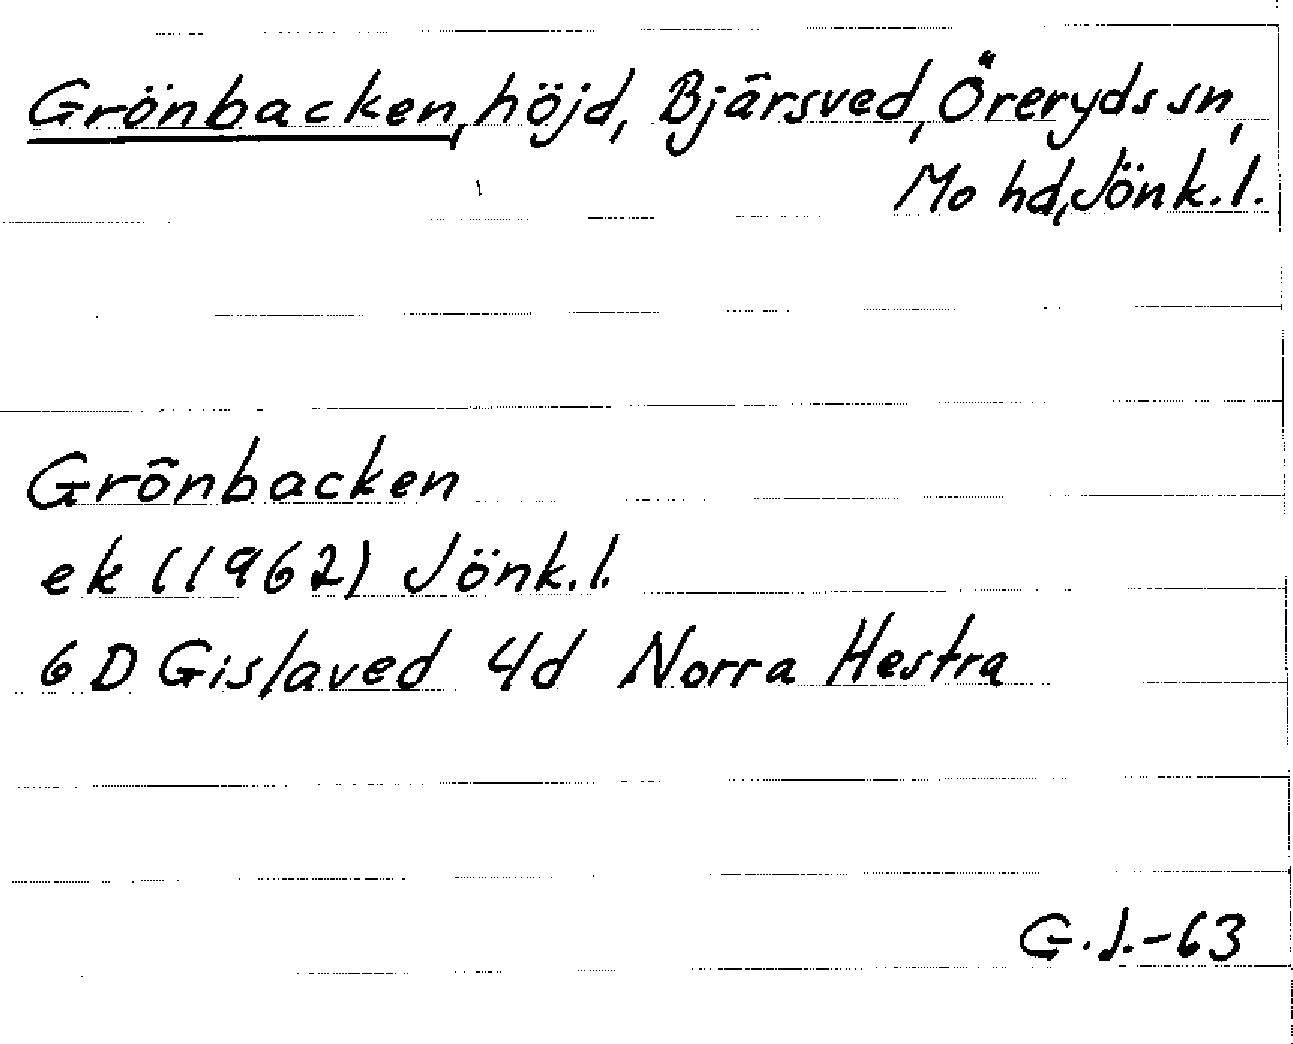 Grönbacken, höjd, Bjärsved, Öreryds sn,
Mo hd, Jönk.l.
Grönbacken
ek (1962) Jönk.l.
6 D Gislaved 4d Norra Hestra
G.J.-63